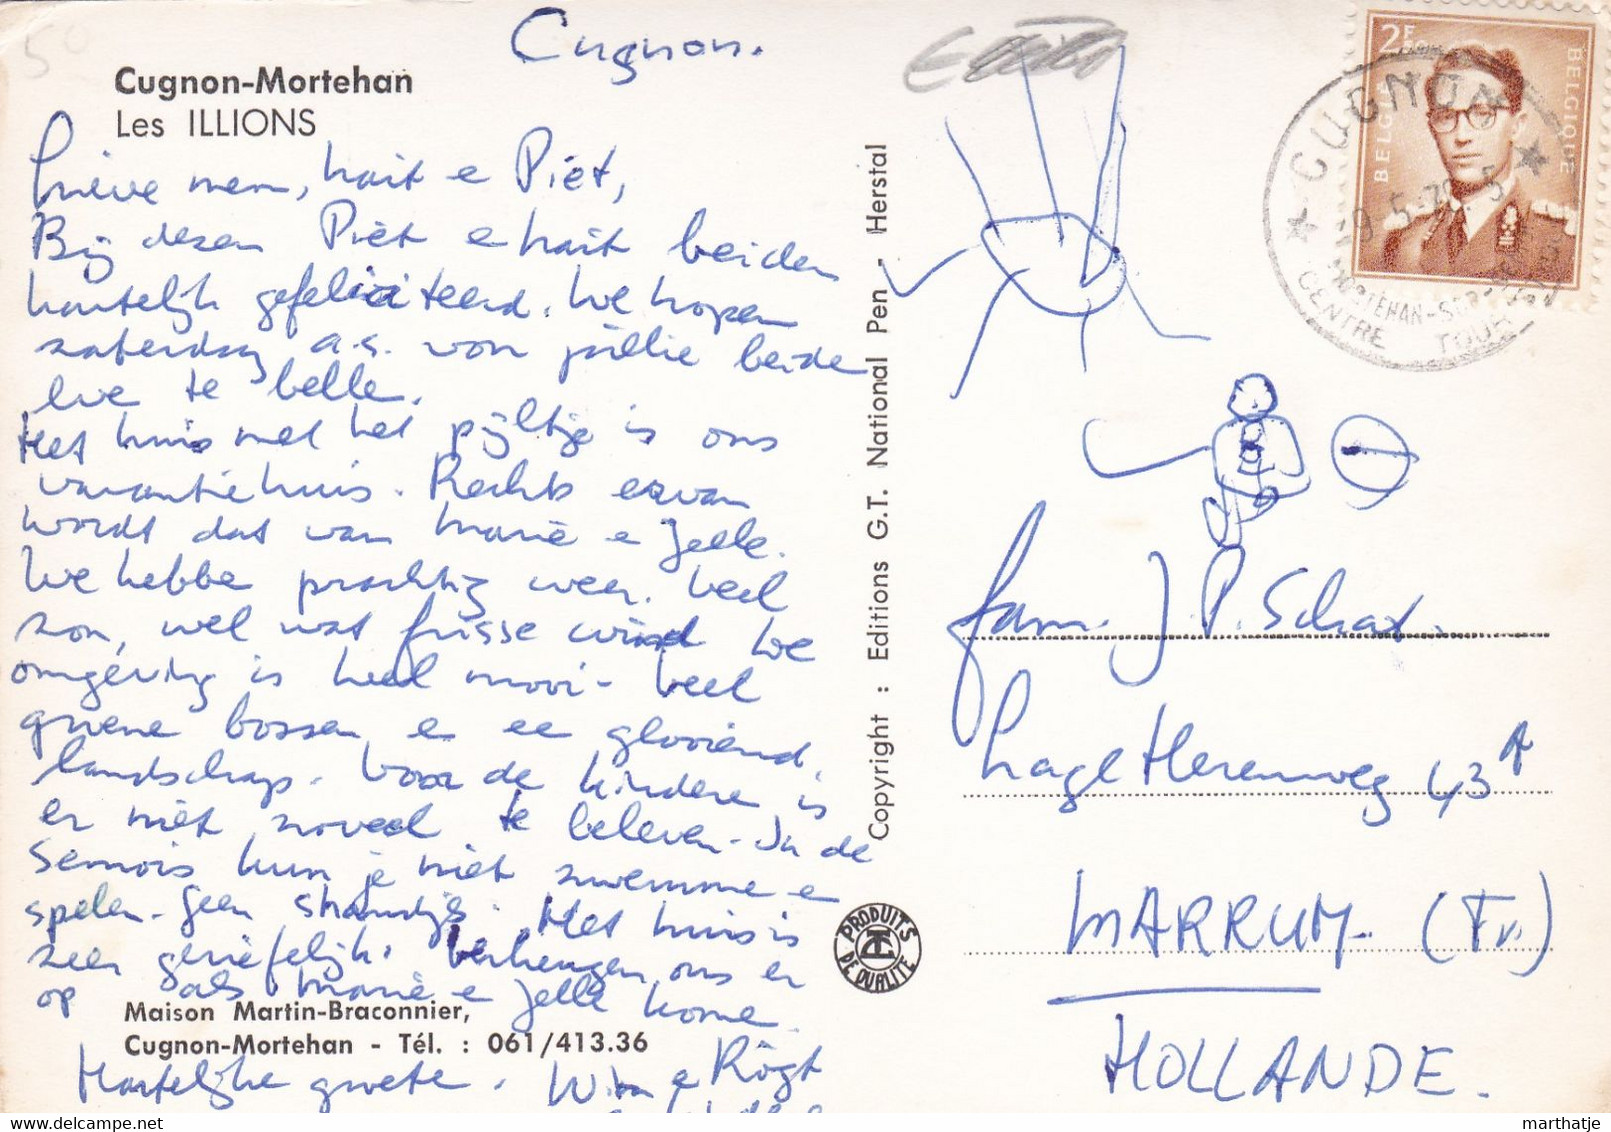 Cugnon.
Cugnon-Mortehan
Les ILLIONS
Lieve mem, hait e Piet,
Bij dezen Piet e hait beiden
hartelijk gefeliciteerd. We hopen
zaterdag a.s. von jùllie beide
eve te belle.
Het huis met het pijltje is ons
vacantiehuis. Rechts ervan
wordt dat van Marie e Jelle.
We hebbe prachtig weer. Veel
zon, wel wat frisse wind. We
omgeving is heel mooi - veel
groene bossen e ee glooiend
landschap. Voor de kindere is
er niet zoveel te beleven. In de
Semois kun je niet zwemme e
spelen. Geen strandjes. Het huis is
zeer geriefelijk. Verheugen ons er
op als Marie e Jelle kome.
Maison Martin-Braconnier,
Cugnon-Mortehan - Tél. : 061/413.36
Hartelijke groete. Wim e
Copyright : Editions G.T. National Pen - Herstal
PRODUITS DE QUALITE
2F
BELGIË BELGIQUE
CUGNON
MORTEHAN
CENTRE TOUR
fam. J. P. Schat.
Lage Herenweg 43 A
MARRUM. (Fr.)
HOLLANDE.
marthatje